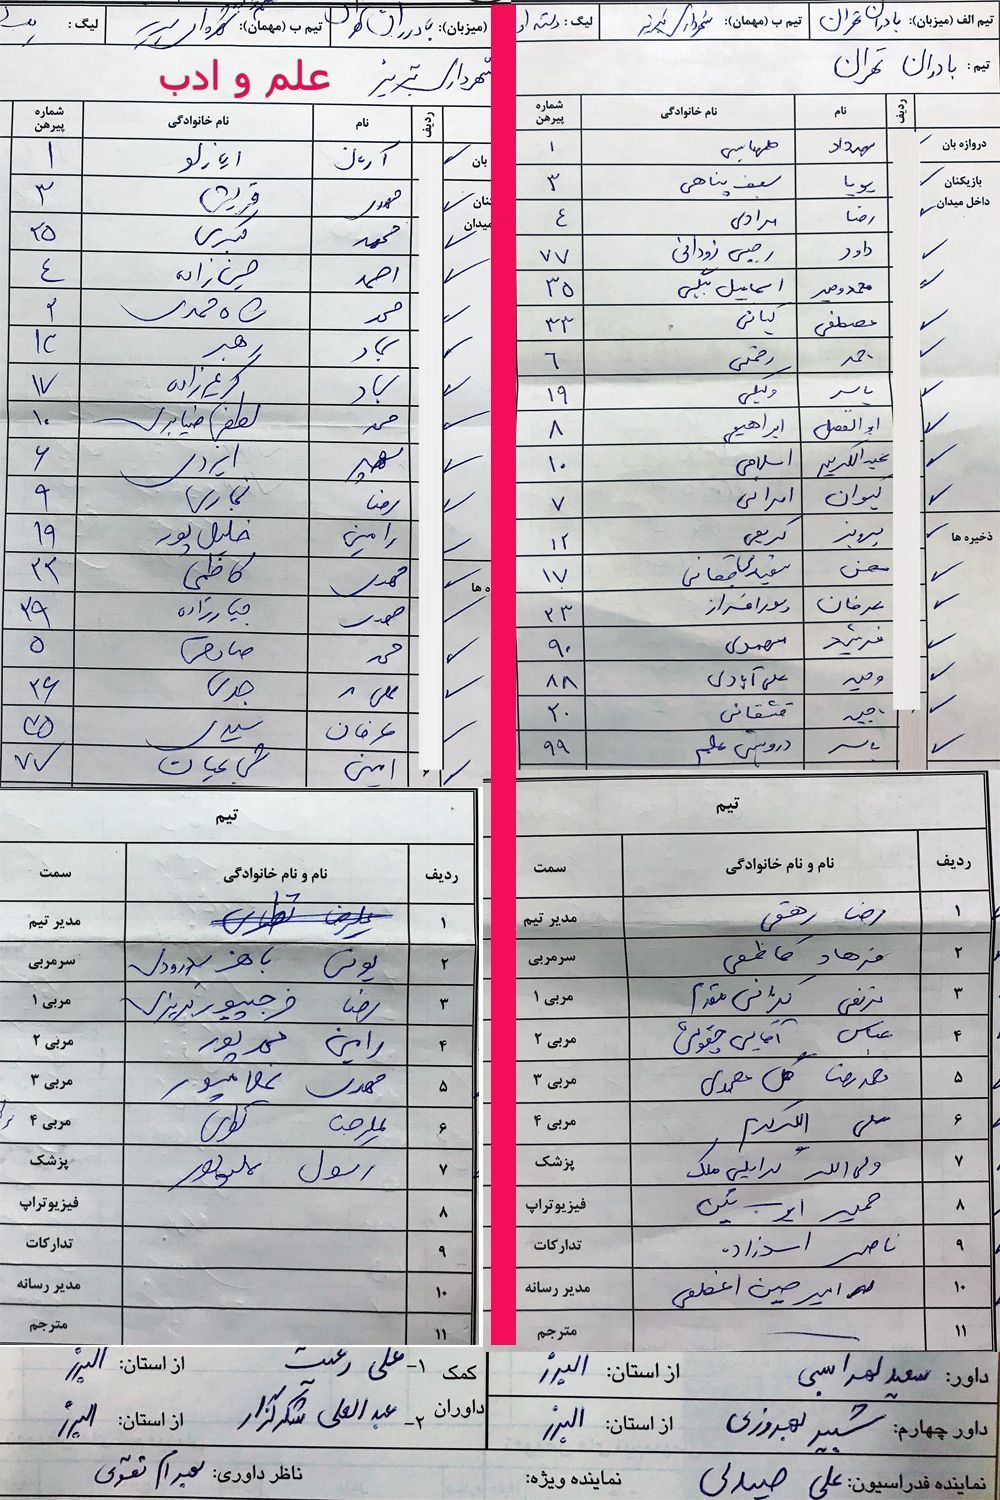 تیم الف (میزبان): بادران تهران تیم ب (مهمان): شهرداری تبریز لیگ: دسته
تیم: بادران تهران
ردیف نام نام خانوادگی شماره پیرهن
دروازه بان مهرداد طهماسبی ۱
بازیکنان داخل میدان پویا سیف پناهی ۳
رضا مرادی ٤
داود رجبی زودانی ۷۷
محمد وحید اسماعیل بیگی ۳۵
مصطفی کیانی ۳۳
احمد رحمتی ۶
یاسر وکیلی ۱۹
ابوالفضل ابراهیمی ۸
عبدالکریم اسلامی ۱۰
کیوان امرائی ۷
ذخیره ها پرویز کریمی ۱۲
محسن ۱۷
عرفان پورافراز ۲۳
فرشید مهدوی ۹۰
وحید علی آبادی ۸۸
مجید قشقائی ۲۰
یاسر درویشی ۹۹
(میزبان): بادران تهران تیم ب (مهمان): شهرداری تبریز لیگ:
علم و ادب
شهرداری تبریز
ردیف نام نام خانوادگی شماره پیرهن
بان آرمان ایازلو ۱
مهدی قریشی ۳
میدان محمد کبیری ۲۵
احمد حسین زاده ٤
محمد شاه محمدی ۲
سجاد رهبر
سجاد کریم زاده ۱۷
محمد لطفی ۱۰
سپهر ایزدی ۶
رضا نجاری ۹
رامین خلیل پور ۱۹
ه ها مهدی کاظمی ۲۲
مهدی جبارزاده ۲۹
محمد صادقی ۵
علی جدی ۲۶
عرفان سیدی
امین شجاعیان ۷۷
تیم
ردیف نام و نام خانوادگی سمت
۱ رضا رهقی مدیر تیم
۲ فرهاد کاظمی سرمربی
۳ مرتضی کیانی مقدم مربی ۱
۴ عباس آقایی مربی ۲
۵ محمدرضا گل محمدی مربی ۳
۶ علی اکبر مربی ۴
۷ ولی الله ملک پزشک
۸ حمید ایوب بیگی فیزیوتراپ
۹ ناصر اسدزاده تدارکات
۱۰ امیرحسین مدیر رسانه
۱۱ مترجم
تیم
ردیف نام و نام خانوادگی سمت
۱ علیرضا مدیر تیم
۲ یونس باهنر سرمربی
۳ رضا فرجپور تبریزی مربی ۱
۴ رامین محمدپور مربی ۲
۵ مهدی مربی ۳
۶ علیرضا مربی ۴
۷ رسول پزشک
۸ فیزیوتراپ
۹ تدارکات
۱۰ مدیر رسانه
۱۱ مترجم
داور: سعید لهراسبی از استان: البرز کمک ۱- علی رعیت از استان: البرز
داور چهارم: شبیر بهروزی از استان: البرز داوران ۲- عبدالعلی شکرگزار از استان: البرز
نماینده فدراسیون: علی صیدلی نماینده ویژه: ناظر داوری: بهرام تقوی